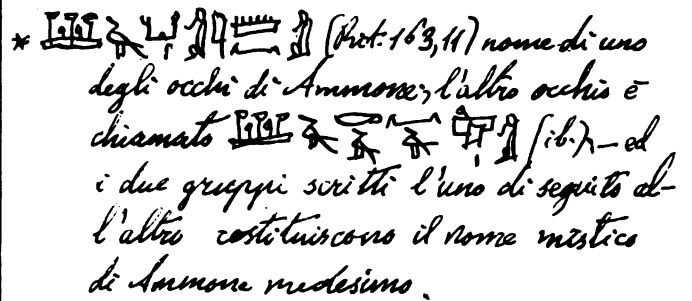 * (Rit. 163,11) nome di uno
degli occhi di Ammone; l'altro occhio è
chiamato (ib.), — ed
i due gruppi scritti l'uno di seguito al-
l'altro costituiscono il nome mistico
di Ammone medesimo.